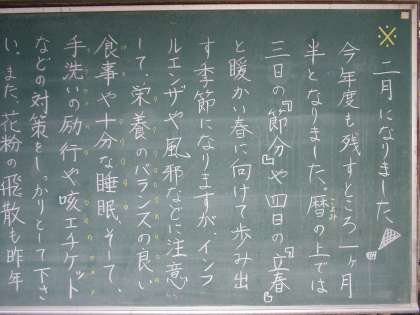 ※ 二月になりました。
今年度も残すところ一ヶ月
半となりました。暦の上では
三日の『節分』や四日の『立春』
と暖かい春に向けて歩み出
す季節になりますが、インフ
ルエンザや風邪などに注意
して、栄養のバランスの良い
食事や十分な睡眠、そして、
手洗いの励行や咳エチケット
などの対策をしっかりとして下さ
い。また、花粉の飛散も昨年